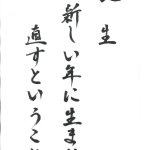 生
新しい年に生ま
直すというこ